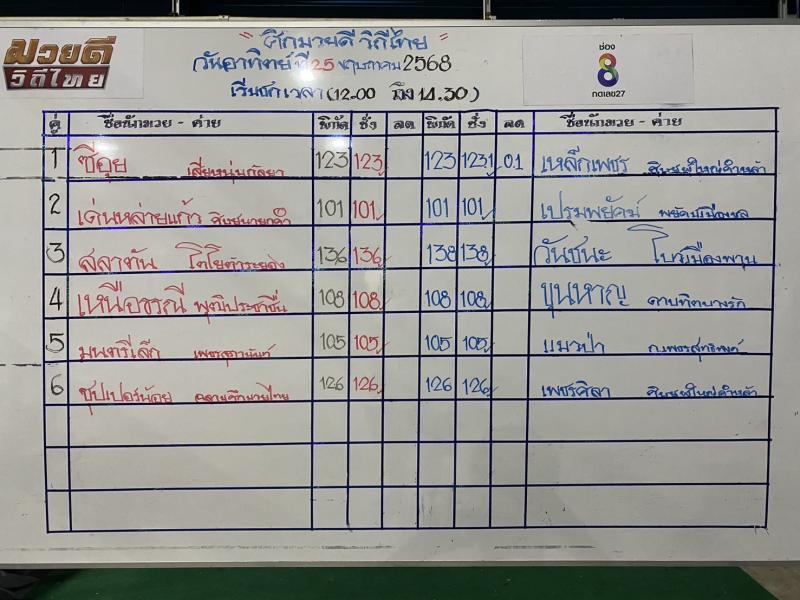 มวยดี
วิถีไทย
"ศึกมวยดี วิถีไทย"
วันอาทิตย์ที่ 25 พฤษภาคม 2568
เริ่มชกเวลา (12.00 ถึง 14.30)
ช่อง
8
กดเลข27
คู่ ชื่อนักมวย - ค่าย พิกัด ชั่ง ลด พิกัด ชั่ง ลด ชื่อนักมวย - ค่าย
1 ซีอุย เสี่ยหนุ่มกัลยา 123 123 123 123.1 0.1 เหล็กเพชร
2 เด่นหล่ายแก้ว 101 101 101 101 เปรมพยัคฆ์ พยัคฆ์เมืองชล
3 สลาตัน โตโยต้าระยอง 136 136 138 138 วันชนะ
4 เหนือธรณี พุฒิประชาชื่น 108 108 108 108 ขุนหาญ ดาบทิตบางรัก
5 มนตรีเล็ก เพชรสุภานันท์ 105 105 105 105 แมวป่า
6 ซุปเปอร์น้อย 126 126 126 126 เพชรศิลา